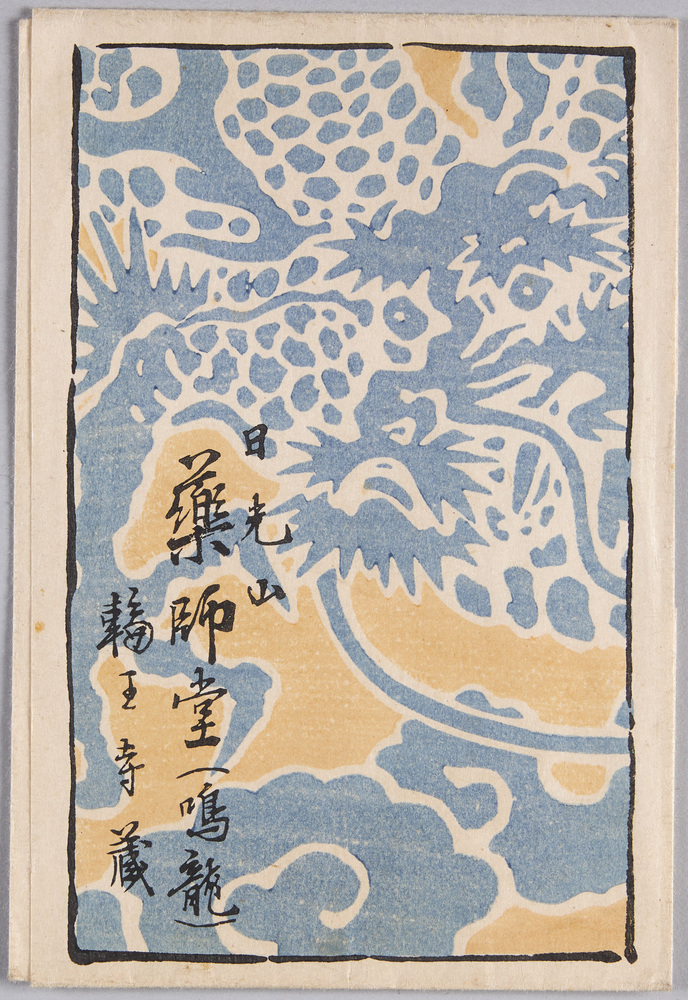 日光山
藥師堂（鳴龍）
輪王寺蔵